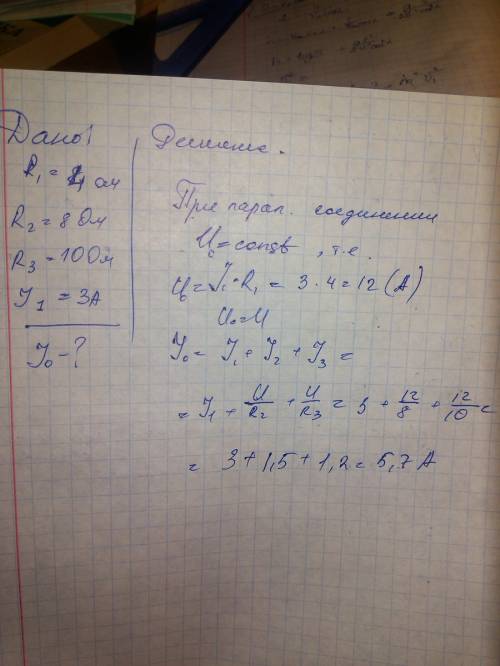 Дано:
R₁ = 4 ом
R₂ = 8 Ом
R₃ = 10 Ом
J₁ = 3А
J₀ - ?
Решение.
При парал. соединении
U₀ = const, т.е.
U₀ = J₁·R₁ = 3·4 = 12 (А)
U₀ = U
J₀ = J₁ + J₂ + J₃ =
= J₁ + U/R₂ + U/R₃ = 3 + 12/8 + 12/10 =
= 3 + 1,5 + 1,2 = 5,7 А